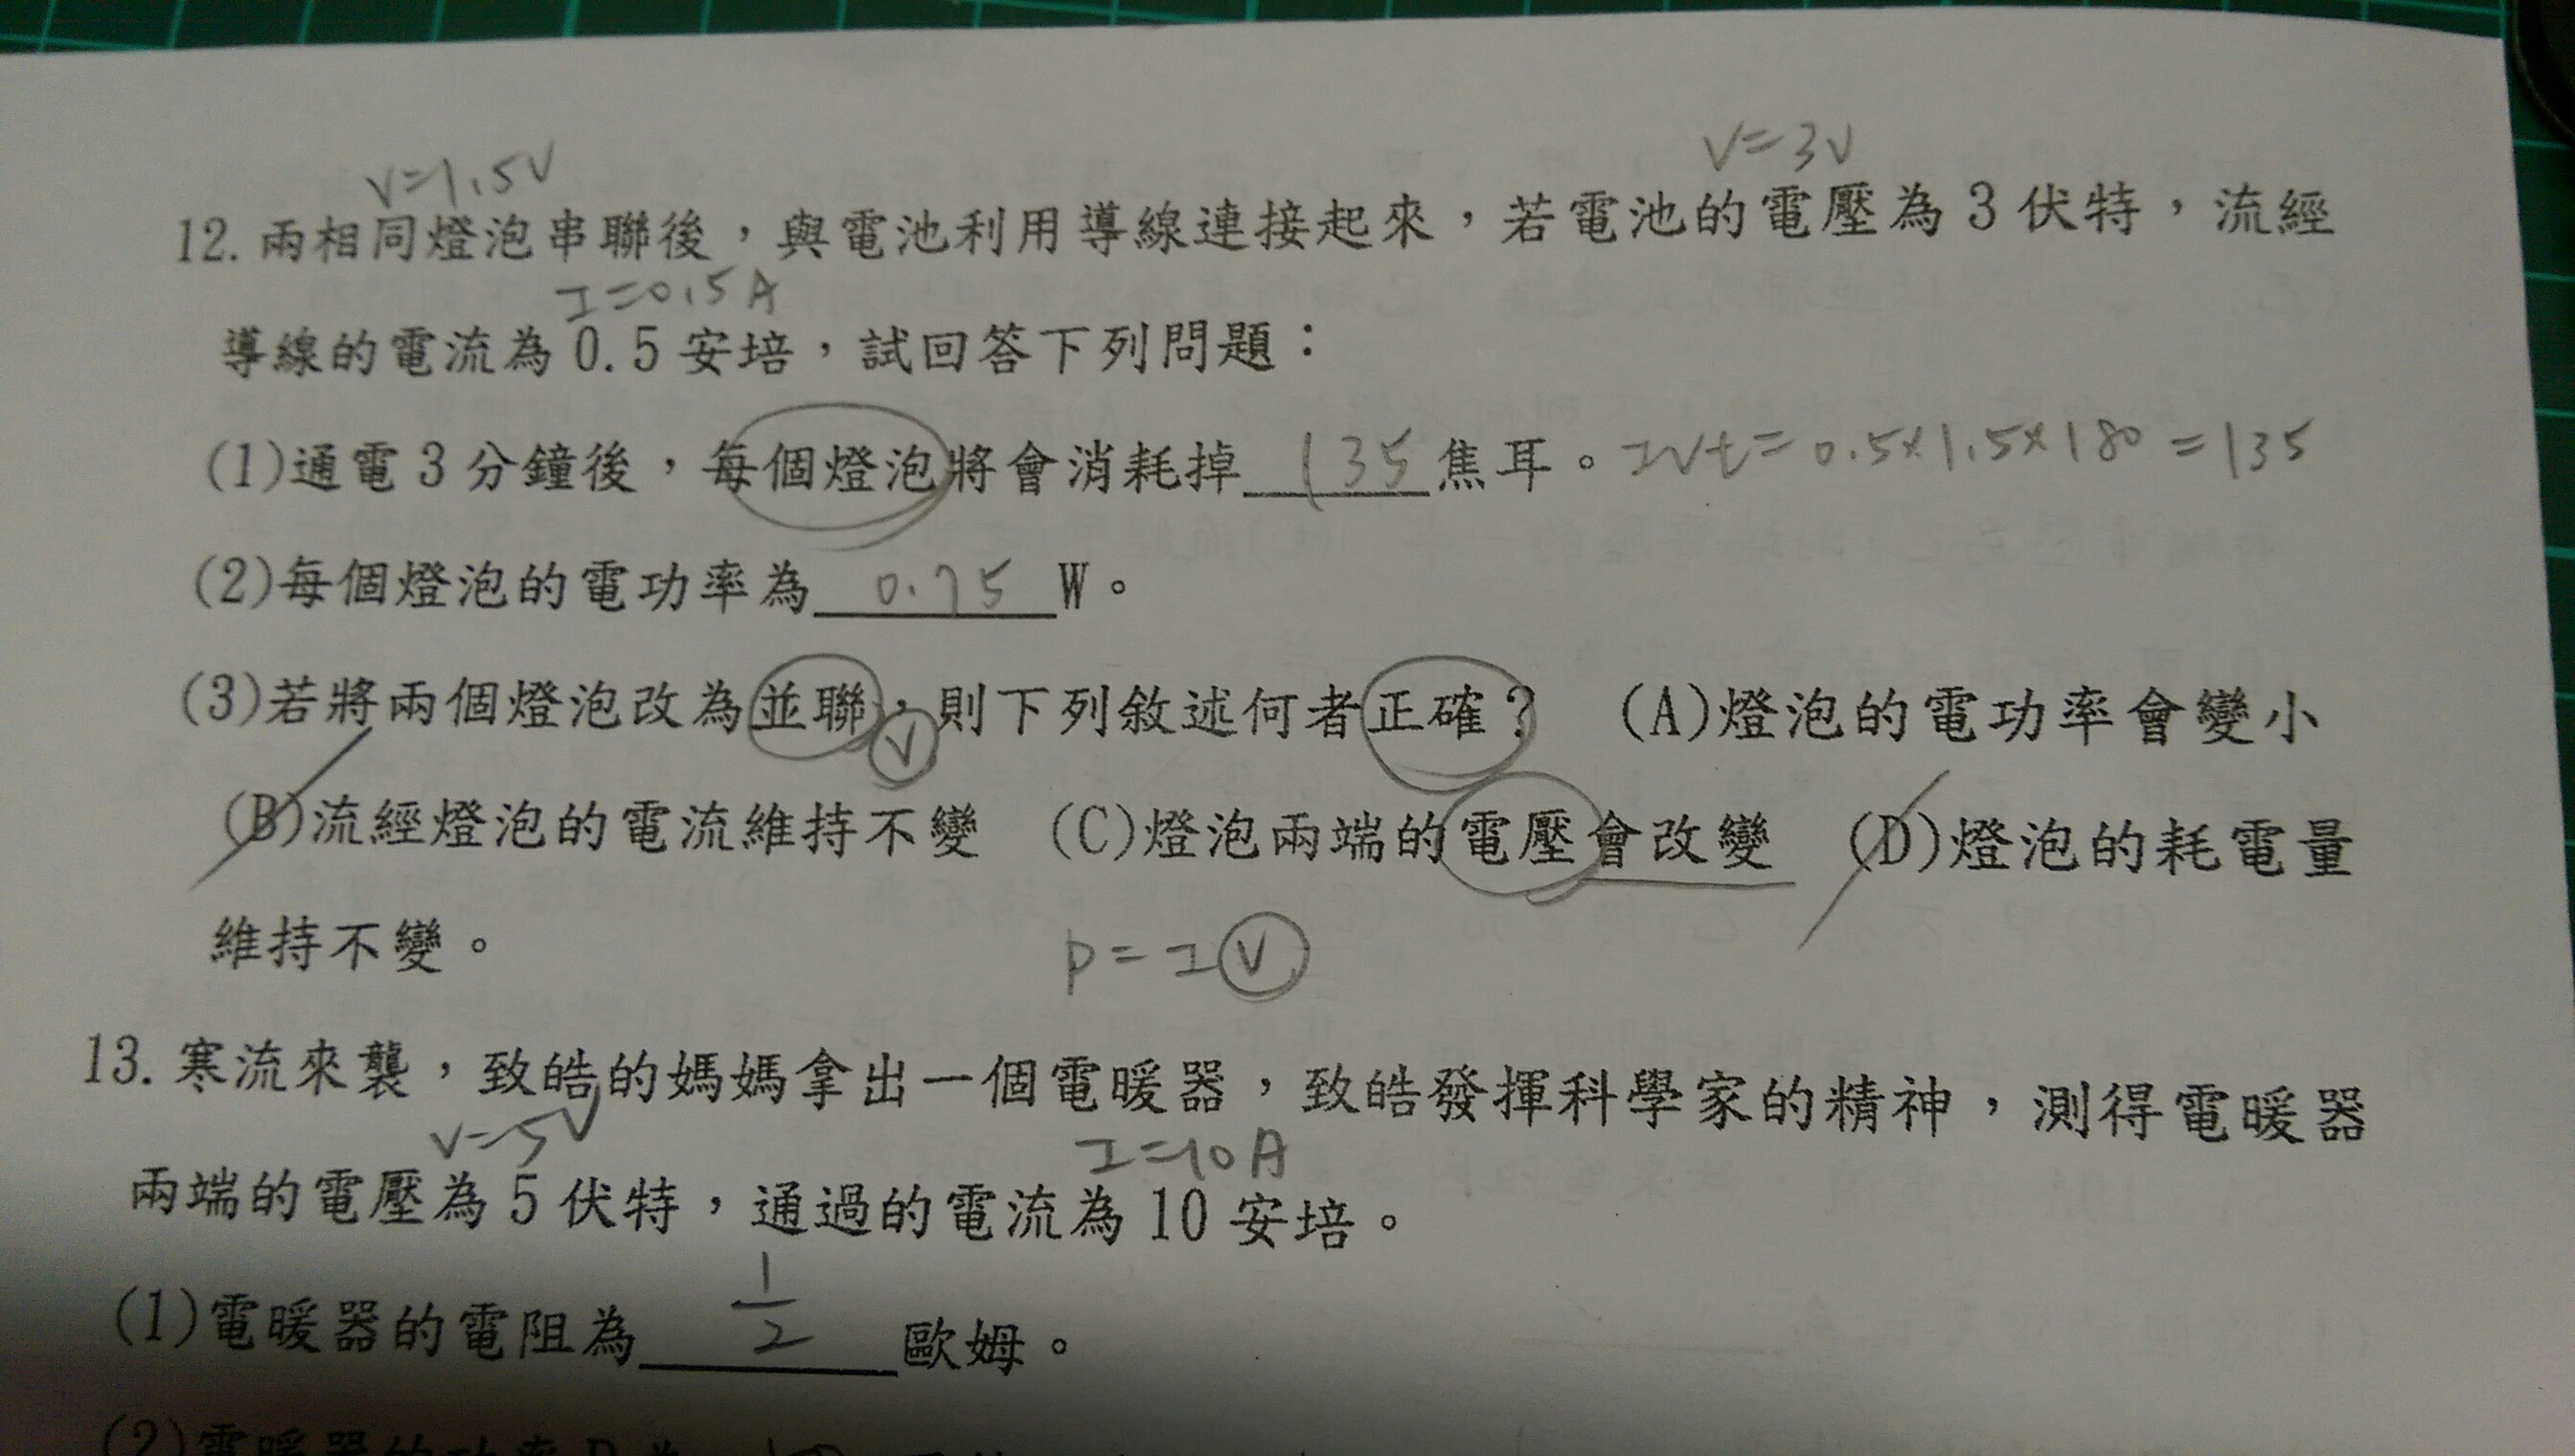 V=1.5V
V=3V
12. 兩相同燈泡串聯後，與電池利用導線連接起來，若電池的電壓為 3 伏特，流經
I=0.5A
導線的電流為 0.5 安培，試回答下列問題：
(1)通電 3 分鐘後，每個燈泡將會消耗掉 135 焦耳。 IVt=0.5×1.5×180=135
(2)每個燈泡的電功率為 0.75 W。
(3)若將兩個燈泡改為並聯，則下列敘述何者正確？ (A)燈泡的電功率會變小
V
(B)流經燈泡的電流維持不變 (C)燈泡兩端的電壓會改變 (D)燈泡的耗電量
維持不變。
P=IV
13. 寒流來襲，致皓的媽媽拿出一個電暖器，致皓發揮科學家的精神，測得電暖器
V=5V
I=10A
兩端的電壓為 5 伏特，通過的電流為 10 安培。
(1)電暖器的電阻為 1/2 歐姆。
(2)電暖器的功率P為